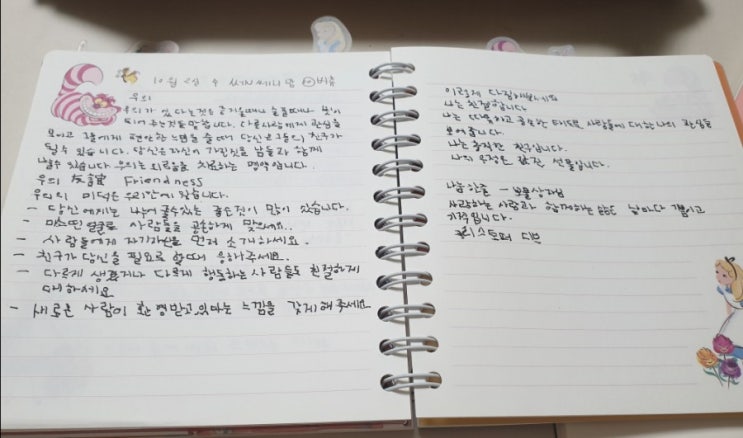 10월
우의
우의가 있다는것은 즐거울때나 슬플때나 벗이
되어 주는것을 말합니다. 다른사람에게 관심을
보이고 그들에게 편안한 느낌을 줄 때 당신은 그들의 친구가
될수 있습니다. 당신은 자신이 가진것을 남들과 함께
나눌수 있습니다. 우의는 외로움을 치료하는 명약입니다.
우의 友誼 Friendness
우의의 미덕은 우리안에 있습니다.
- 당신에게는 나누어줄수있는 좋은것이 많이 있습니다.
- 미소띤 얼굴로 사람들을 공손하게 맞으세요.
- 사람들에게 자기자신을 먼저 소개하세요.
- 친구가 당신을 필요로 할때 응해주세요.
- 다르게 생겼거나 다르게 행동하는 사람들도 친절하게
대하세요
- 새로운 사람이 환영받고있다는 느낌을 갖게해주세요.
이렇게 다짐해보세요
나는 친절합니다.
나는 따뜻하고 공손한 태도로 사람들에 대한 나의 관심을
보여줍니다.
나는 충직한 친구입니다.
나의 우정은 값진 선물입니다.
보물상자
사랑하는 사람과 함께하는 날마다 깊이고
기적입니다.
크리스토퍼